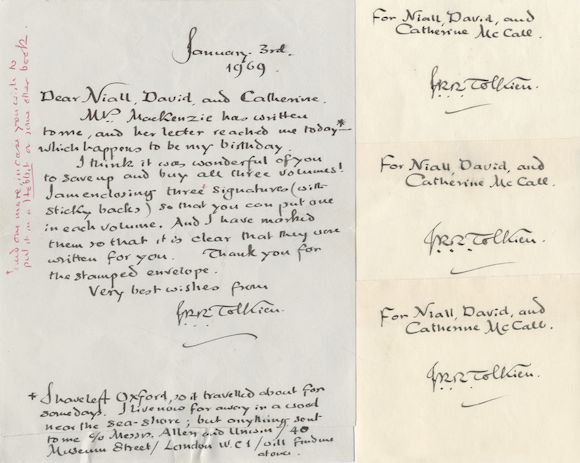 January 3rd.
1969.
Dear Niall, David, and Catherine.
Mrs. MacKenzie has written
to me, and her letter reached me today*
which happens to be my birthday.
I think it was wonderful of you
to save up and buy all three volumes!
I am enclosing three* signatures (with
sticky backs) so that you can put one
in each volume. And I have marked
them so that it is clear that they were
written for you. Thank you for
the stamped envelope.
Very best wishes from
JRR Tolkien.
* I have left Oxford, so it travelled about for
some days. I live now far away in a wood
near the sea-shore; but anything sent
to me c/o Messrs. Allen and Unwin / 40
Museum Street / London W.C.1 / will find me
* and one more in case you wish to
put it in a Hobbit or some other book.
For Niall, David, and
Catherine McCall.
JRR Tolkien.
For Niall David, and
Catherine McCall.
JRR Tolkien.
For Niall, David, and
Catherine McCall.
JRR Tolkien.